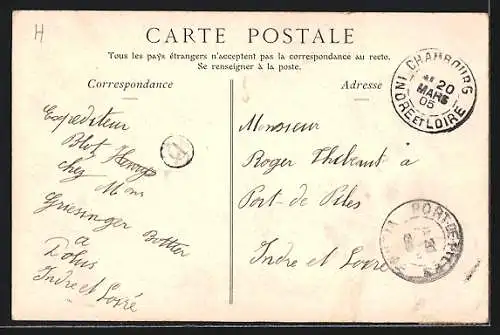 H
CARTE POSTALE
Tous les pays étrangers n'acceptent pas la correspondance au recto.
Se renseigner à la poste.
Correspondance
Adresse
CHAMBOURG
20
MARS
05
INDRE ET LOIRE
Expéditeur
Blot
chez Mons
Griesinger Bottier
a
Dolus
Indre et Loire
Monsieur
Roger Thibault a
Port-de Piles
Indre et Loire
PORT-DE-PILES
VIENNE